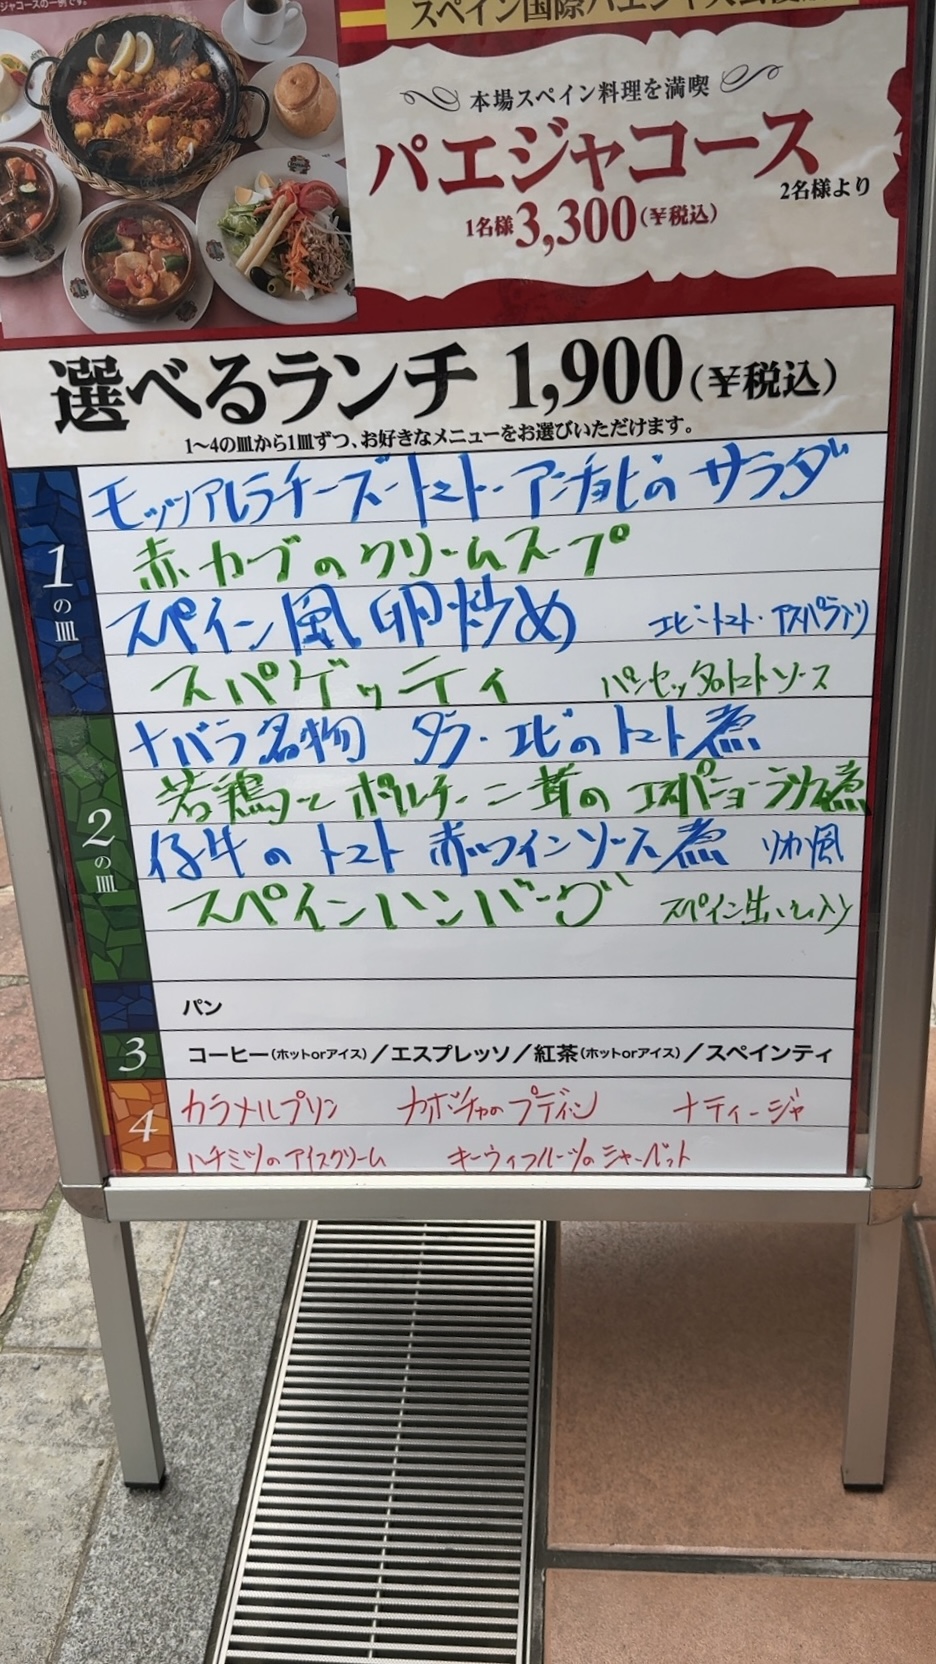 ジャコースの一例です。
スペイン国際パエジャ
本場スペイン料理を満喫
パエジャコース
2名様より
1名様3,300(￥税込)
選べるランチ 1,900(￥税込)
1〜4の皿から1皿ずつ、お好きなメニューをお選びいただけます。
1の皿
モッツアレラチーズ・トマト・アンチョビの サラダ
赤カブのクリームスープ
スペイン風卵炒め エビ・トマト・アスパラ入り
スパゲッティ パンセッタのトマトソース
2の皿
ナバラ名物 タラ・エビのトマト煮
若鶏とポルチーニ茸のエスパニョーラソース煮
仔牛のトマト赤ワインソース煮 リオハ風
スペインハンバーグ スペイン生ハム入り
パン
3
コーヒー(ホットorアイス)／エスプレッソ／紅茶(ホットorアイス)／スペインティ
4
カラメルプリン カボチャのプディン ナティージャ
ハチミツのアイスクリーム キーウィフルーツのシャーベット